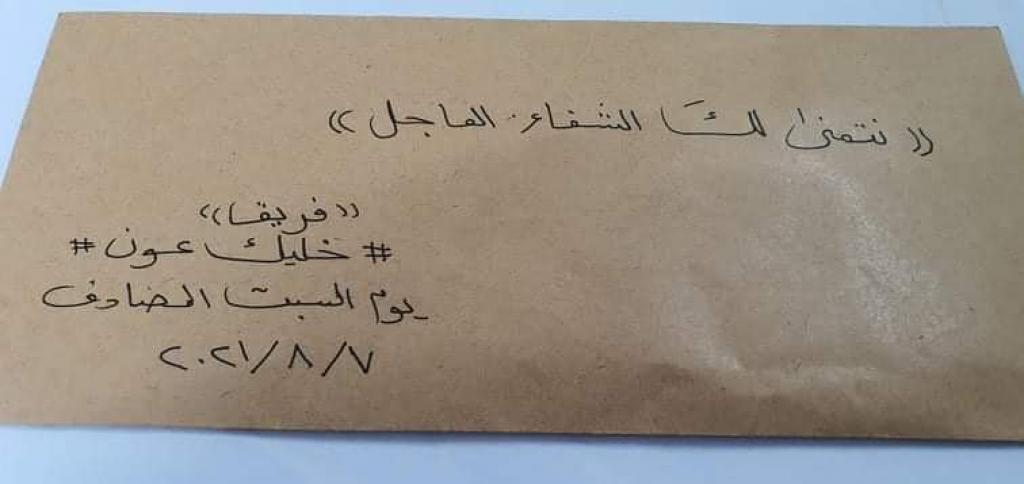 (( نتمنىٰ لكَ الشفاء العاجل ))
((فريقا))
# خليك عون #
يوم السبت المصادف
٢٠٢١/٨/٧